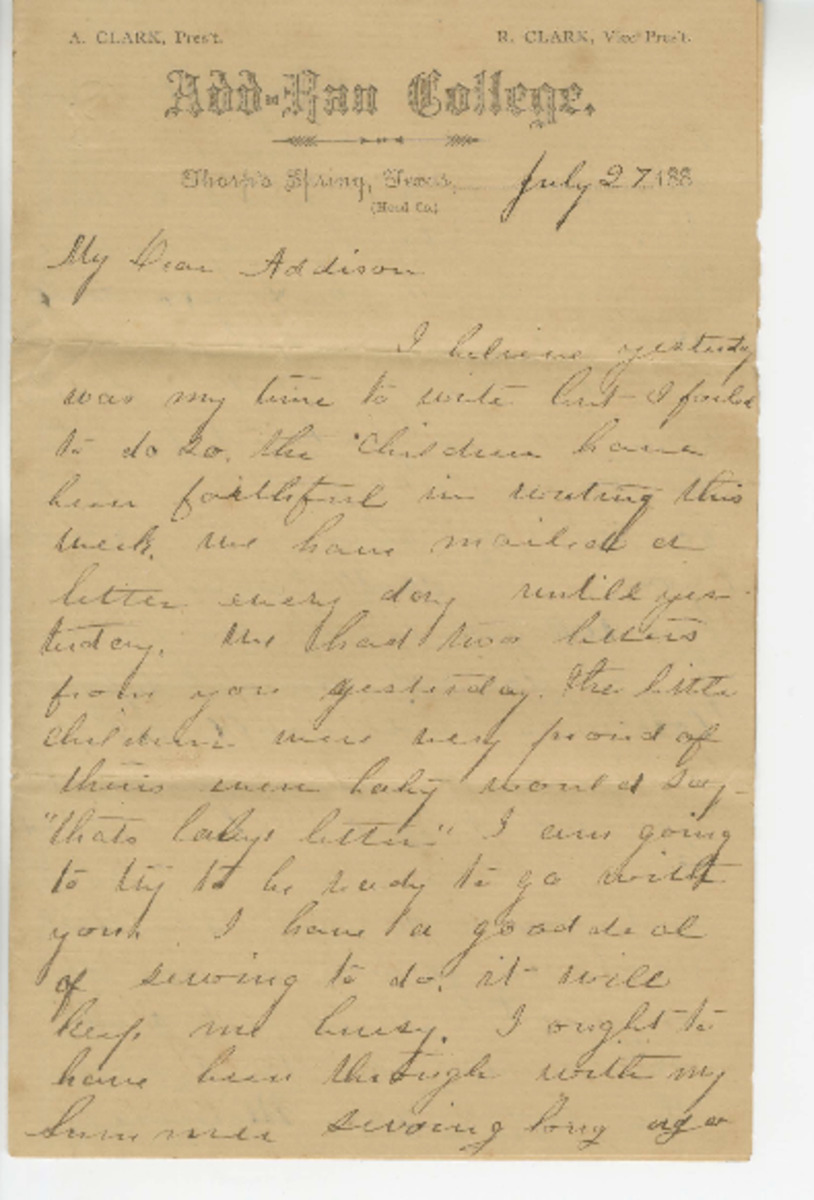 A. CLARK, Pres't. R. CLARK, Vice Pres't.
Add-Ran College.
Thorp's Spring, Texas, July 27 188
(Hood Co.)
My Dear Addison
I believe yesterday
was my time to write but I failed
to do so. the children have
been faithful in writing this
week. we have mailed a
letter every day untill yes-
terday. We had two letters
from you yesterday. The little
children were very proud of
theirs even baby would say
"thats babys letter." I am going
to try to be ready to go with
you. I have a good deal
of sewing to do. it will
keep me busy. I ought to
have been through with my
Summer sewing long ago